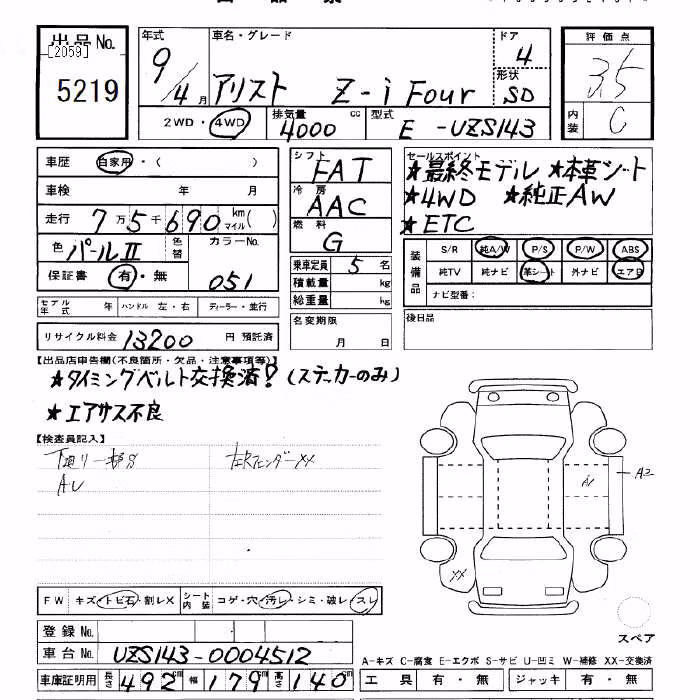 出品No.
[2059]
5219
年式 車名・グレード ドア 評価点
9/4月 アリスト Z-i Four 4 3.5
形状 SD
2WD・4WD 排気量 4000cc 型式 E-UZS143 内装 C
車歴 自家用・( )
車検 年 月
走行 7万5千690km マイル( )
色 パールⅡ 色替 カラーNo.
保証書 有・無 051
モデル年式 年 ハンドル 左・右 ディーラー・並行
リサイクル料金 13200円 預託済
シフト FAT
冷房 AAC
燃料 G
乗車定員 5名
積載量 kg
総重量 kg
名変期限
月 日
セールスポイント
★最終モデル ★本革シート
★4WD ★純正AW
★ETC
装備品
S/R 純A/W P/S P/W ABS
純TV 純ナビ 革シート 外ナビ エアB
ナビ型番:
後日品
【出品店申告欄(不良箇所・欠品・注意事項等)】
★タイミングベルト交換済?(ステッカーのみ)
★エアサス不良
【検査員記入】
左Rフェンダーxx
AU
A1
A2
XX
スペア
FW キズ・トビ石・割レX シート内装 コゲ・穴・汚レ・シミ・破レ・スレ
登録No.
車台No. UZS143-0004512
車庫証明用 長さ492cm 幅179cm 高さ140cm
A-キズ C-腐食 E-エクボ S-サビ U-凹ミ W-補修 XX-交換済
工具 有・無 ジャッキ 有・無